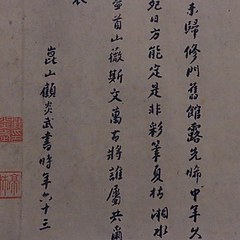 未歸修門舊館露先晞中年久
宛日方能定是非彩筆夏枯湘水
首山薇斯文萬古將誰屬共爾
崑山顧炎武書時年六十三